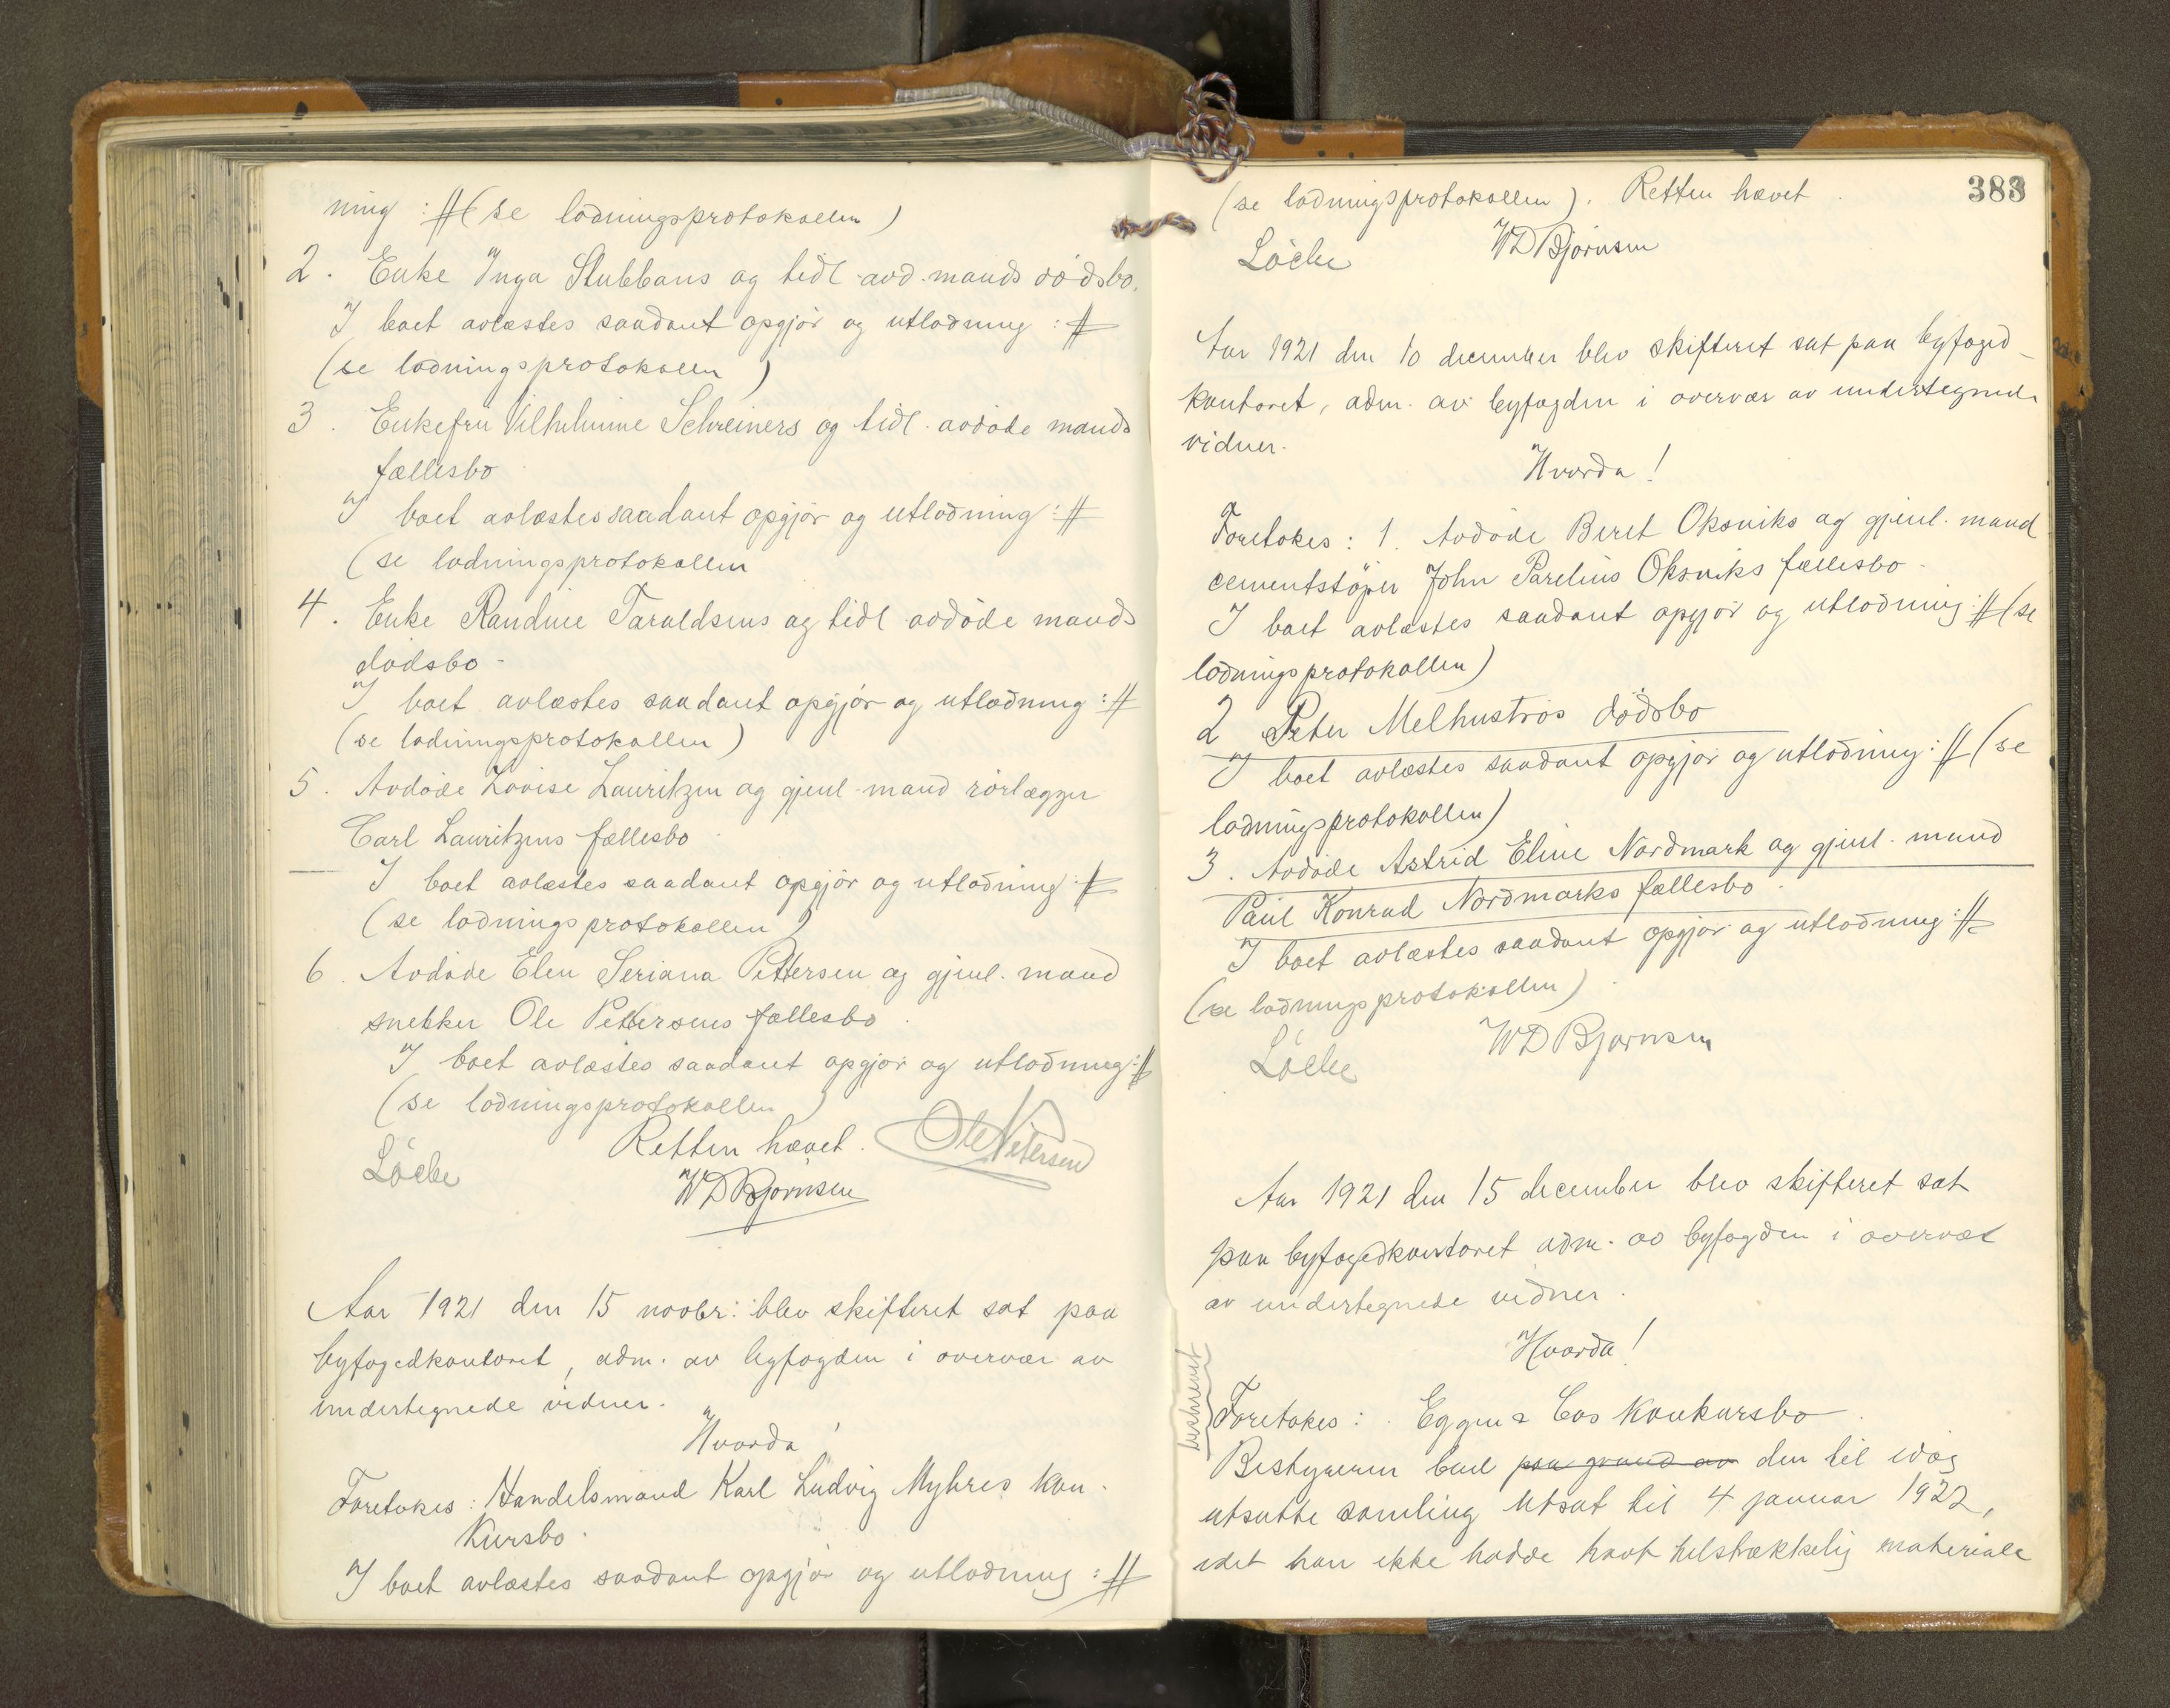 ning :# (se lodningsprotokollen)
2. Enke Inga Stubbans og tidl. avd. mands dödsbo.
I boet avlæstes saadant opgjör og utlodning :#
(se lodningsprotokollen)
3. Enkefru Vilhelmine Schreiners og tidl. avdöde mands
fællesbo
I boet avlæstes saadant opgjör og utlodning :#
(se lodningsprotokollen
4. Enke Randine Taraldsens og tidl avdöde mands
dödsbo.
I boet avlæstes saadant opgjör og utlodning :#
(se lodningsprotokollen)
5. Avdöde Lovise Lauritzen og gjenl. mand rörlægger
Carl Lauritzens fællesbo
I boet avlæstes saadant opgjör og utlodning :#
(se lodningsprotokollen)
6. Avdöde Elen Seriana Pettersen og gjenl. mand
snekker Ole Pettersens fællesbo.
I boet avlæstes saadant opgjör og utlodning :#
(se lodningsprotokollen)
Retten hævet. Ole Petersen
Löcke WDBjörnsen
Aar 1921 den 15 novbr: blev skifteret sat paa
byfogedkontoret, adm. av byfogden i overvær av
undertegnede vidner.
Hvorda!
Foretokes: Handelsmand Karl Ludvig Myhres kon-
kursbo.
I boet avlæstes saadant opgjör og utlodning :#
383
(se lodningsprotokollen). Retten hævet.
Löcke WDBjörnsen
Aar 1921 den 10 december blev skifteret sat paa byfoged-
kontoret, adm. av byfogden i overvær av undertegnede
vidner.
Hvorda!
Foretokes: 1. Avdöde Beret Oksviks og gjenl. mand
cementstöper John Parelius Oksviks fællesbo.
I boet avlæstes saadant opgjör og utlodning :# (se
lodningsprotokollen)
2 Peter Melhustrøs dödsbo
I boet avlæstes saadant opgjör og utlodning :# (se
lodningsprotokollen)
3. Avdöde Astrid Eline Nordmark og gjenl. mand
Paul Konrad Nordmarks fællesbo.
I boet avlæstes saadant opgjör og utlodning :#
(se lodningsprotokollen)
Löcke WDBjörnsen
Aar 1921 den 15 december blev skifteret sat
paa byfogedkontoret adm. av byfogden i overvær
av undertegnede vidner.
Hvorda!
beskrevet
Foretokes: Eggen & Cos konkursbo.
Bestyreren bad paa grund av den til idag
utsatte samling utsat til 4 januar 1922,
idet han ikke hadde havt tilstrækkelig materiale